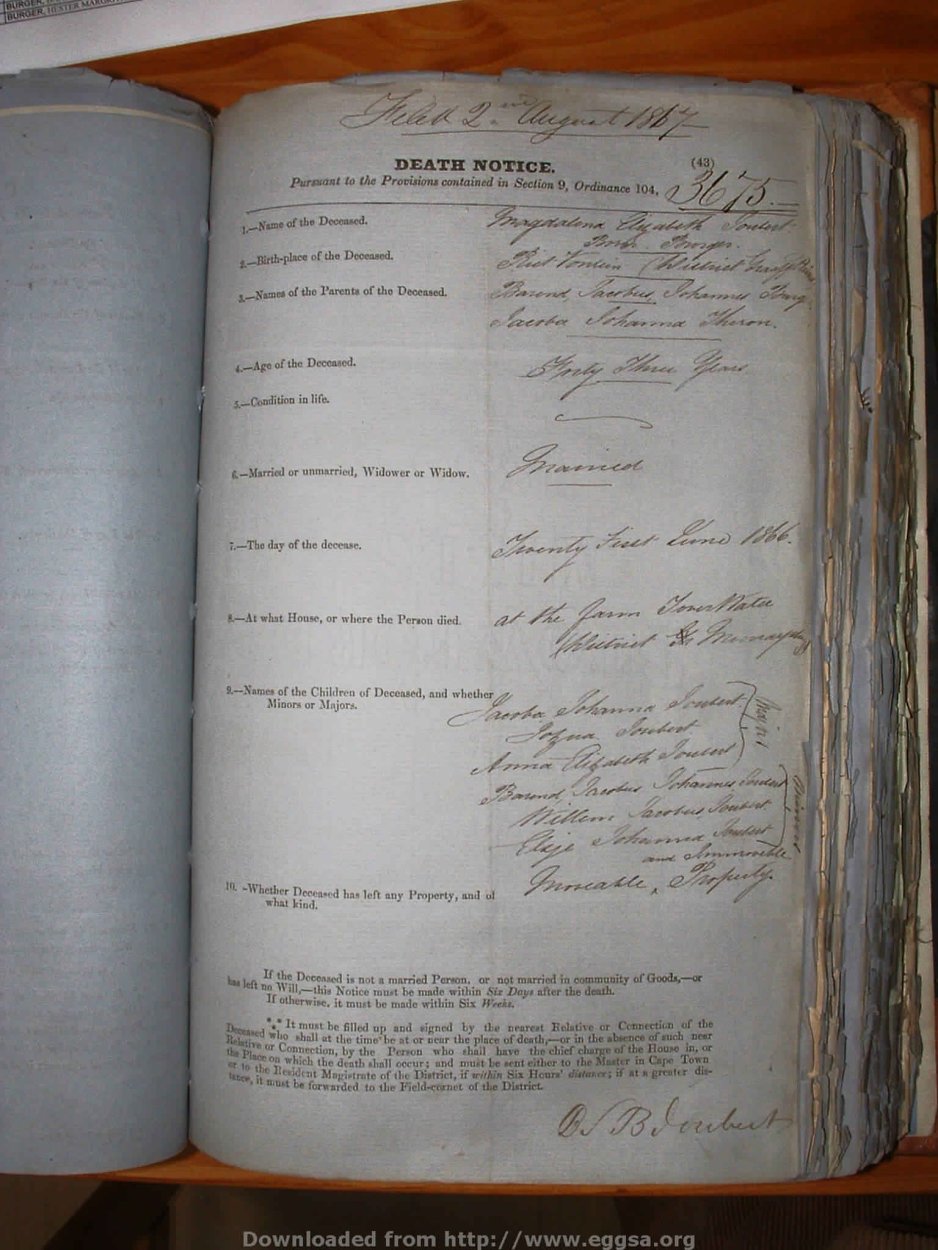 BURGER,
BURGER, HESTER
Filed 2nd August 1867
DEATH NOTICE. (43)
Pursuant to the Provisions contained in Section 9, Ordinance 104. 3675.
1.—Name of the Deceased. Magdalena Elizabeth Joubert
Born Burger.
2.—Birth-place of the Deceased. (District Graaff
3.—Names of the Parents of the Deceased. Barend Jacobus Johannes Burg
Jacoba Johanna Theron.
4.—Age of the Deceased. Forty Three Years
5.—Condition in life.
6.—Married or unmarried, Widower or Widow. Married
7.—The day of the decease. Twenty First June 1866.
8.—At what House, or where the Person died. at the farm
District Murraysburg
9.—Names of the Children of Deceased, and whether
Minors or Majors.
Jacoba Johanna Joubert Majors
Josua Joubert
Anna Elizabeth Joubert
Barend Jacobus Johannes Joubert Minors
Willem Jacobus Joubert
Elsje Johanna Joubert
and Immovable
10. -Whether Deceased has left any Property, and of Moveable ‸ Property.
what kind.
If the Deceased is not a married Person, or not married in community of Goods,—or
has left no Will,—this Notice must be made within Six Days after the death.
If otherwise, it must be made within Six Weeks.
*** It must be filled up and signed by the nearest Relative or Connection of the
Deceased who shall at the time be at or near the place of death,—or in the absence of such near
Relative or Connection, by the Person who shall have the chief charge of the House in, or
the Place on which the death shall occur; and must be sent either to the Master in Cape Town
or to the Resident Magistrate of the District, if within Six Hours' distance; if at a greater dis-
tance, it must be forwarded to the Field-cornet of the District.
Joubert
Downloaded from http://www.eggsa.org